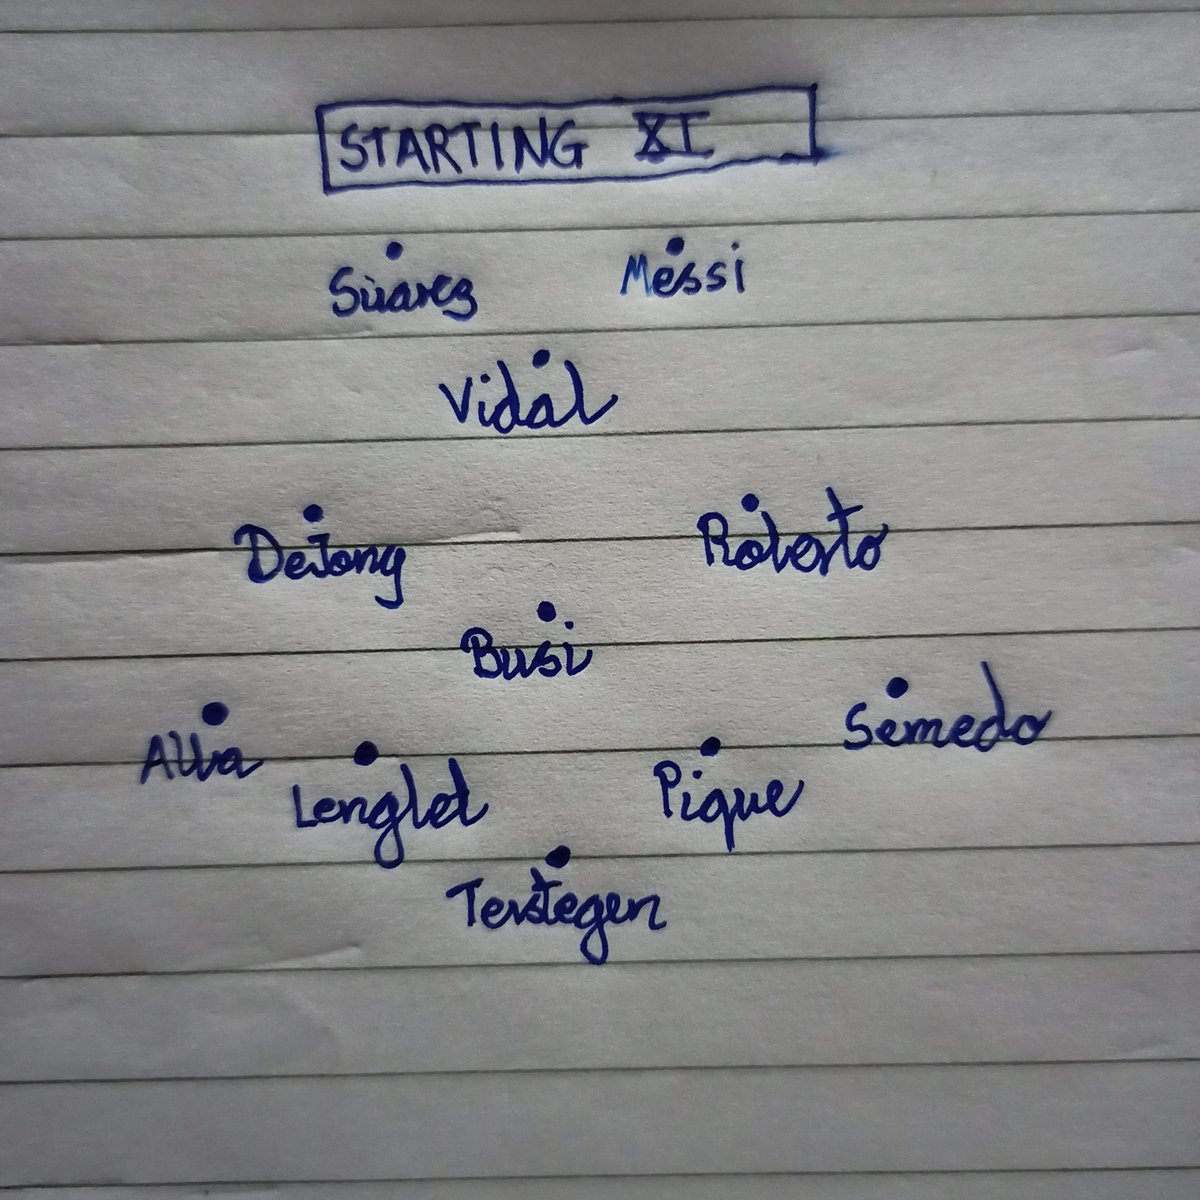 STARTING XI
Suarez Messi
Vidal
DeJong Roberto
Busi
Alba Semedo
Lenglet Pique
Terstegen